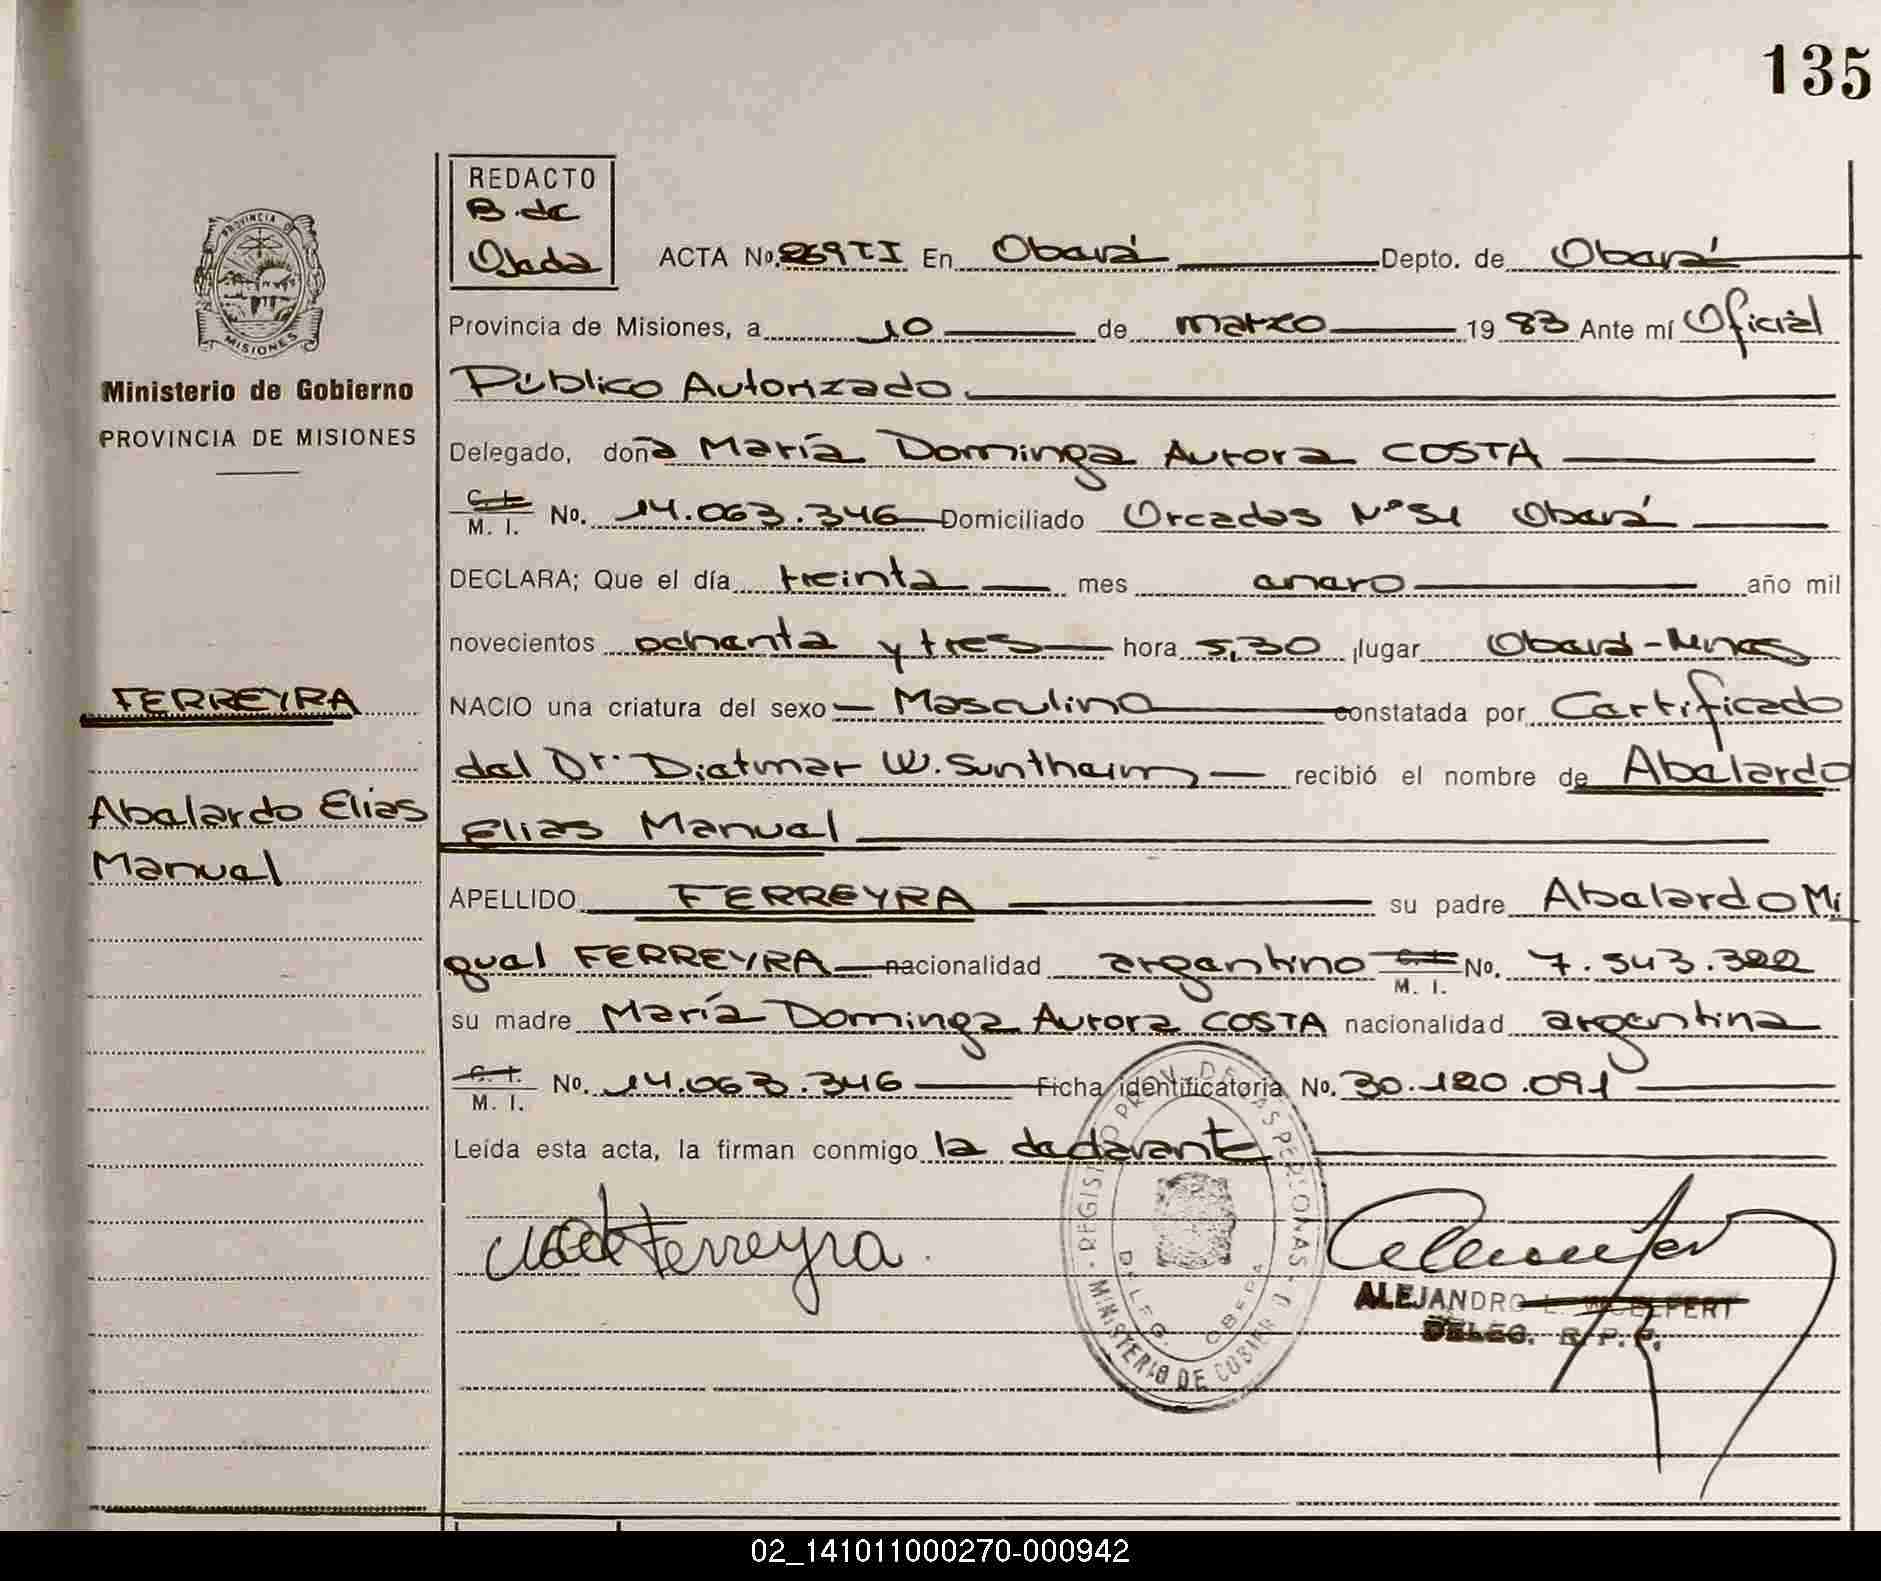 135
REDACTO
B. de
Ojeda
ACTA No. 269 TI En Oberá Depto. de Oberá
PROVINCIA DE
MISIONES
Provincia de Misiones, a 10 de marzo 1983 Ante mí Oficial
Ministerio de Gobierno
PROVINCIA DE MISIONES
Público Autorizado
Delegado, doña María Dominga Aurora COSTA
C. I.
M. I. No. 14.063.346 Domiciliado Orcadas Nº 51 Oberá
DECLARA; Que el día treinta mes enero año mil
novecientos ochenta y tres hora 5,30 lugar Oberá-Mnes
FERREYRA
NACIO una criatura del sexo Masculino constatada por Certificado
del Dr. Dietmar W. Sontheim recibió el nombre de Abelardo
Abelardo Elias
Manuel
Elias Manuel
APELLIDO FERREYRA su padre Abelardo Mi
guel FERREYRA nacionalidad argentino C. I. No. 7.543.322
M. I.
su madre María Dominga Aurora COSTA nacionalidad argentina
C. I.
M. I. No. 14.063.346 Ficha identificatoria No. 30.120.091
Leída esta acta, la firman conmigo la declarante
REGISTRO PROV. DE LAS PERSONAS
DELEG. OBERA
MINISTERIO DE GOBIERNO
Ferreyra
ALEJANDRO L. WOELFERT
DELEG. R. P. P.
02_141011000270-000942